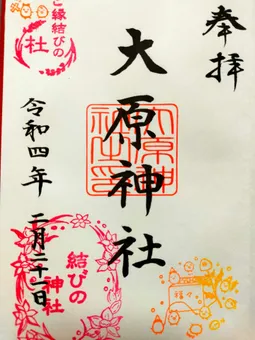 奉拝
大原神社
令和四年 二月二十一日
ご縁結びの
杜
大原神社之印
結びの
神社